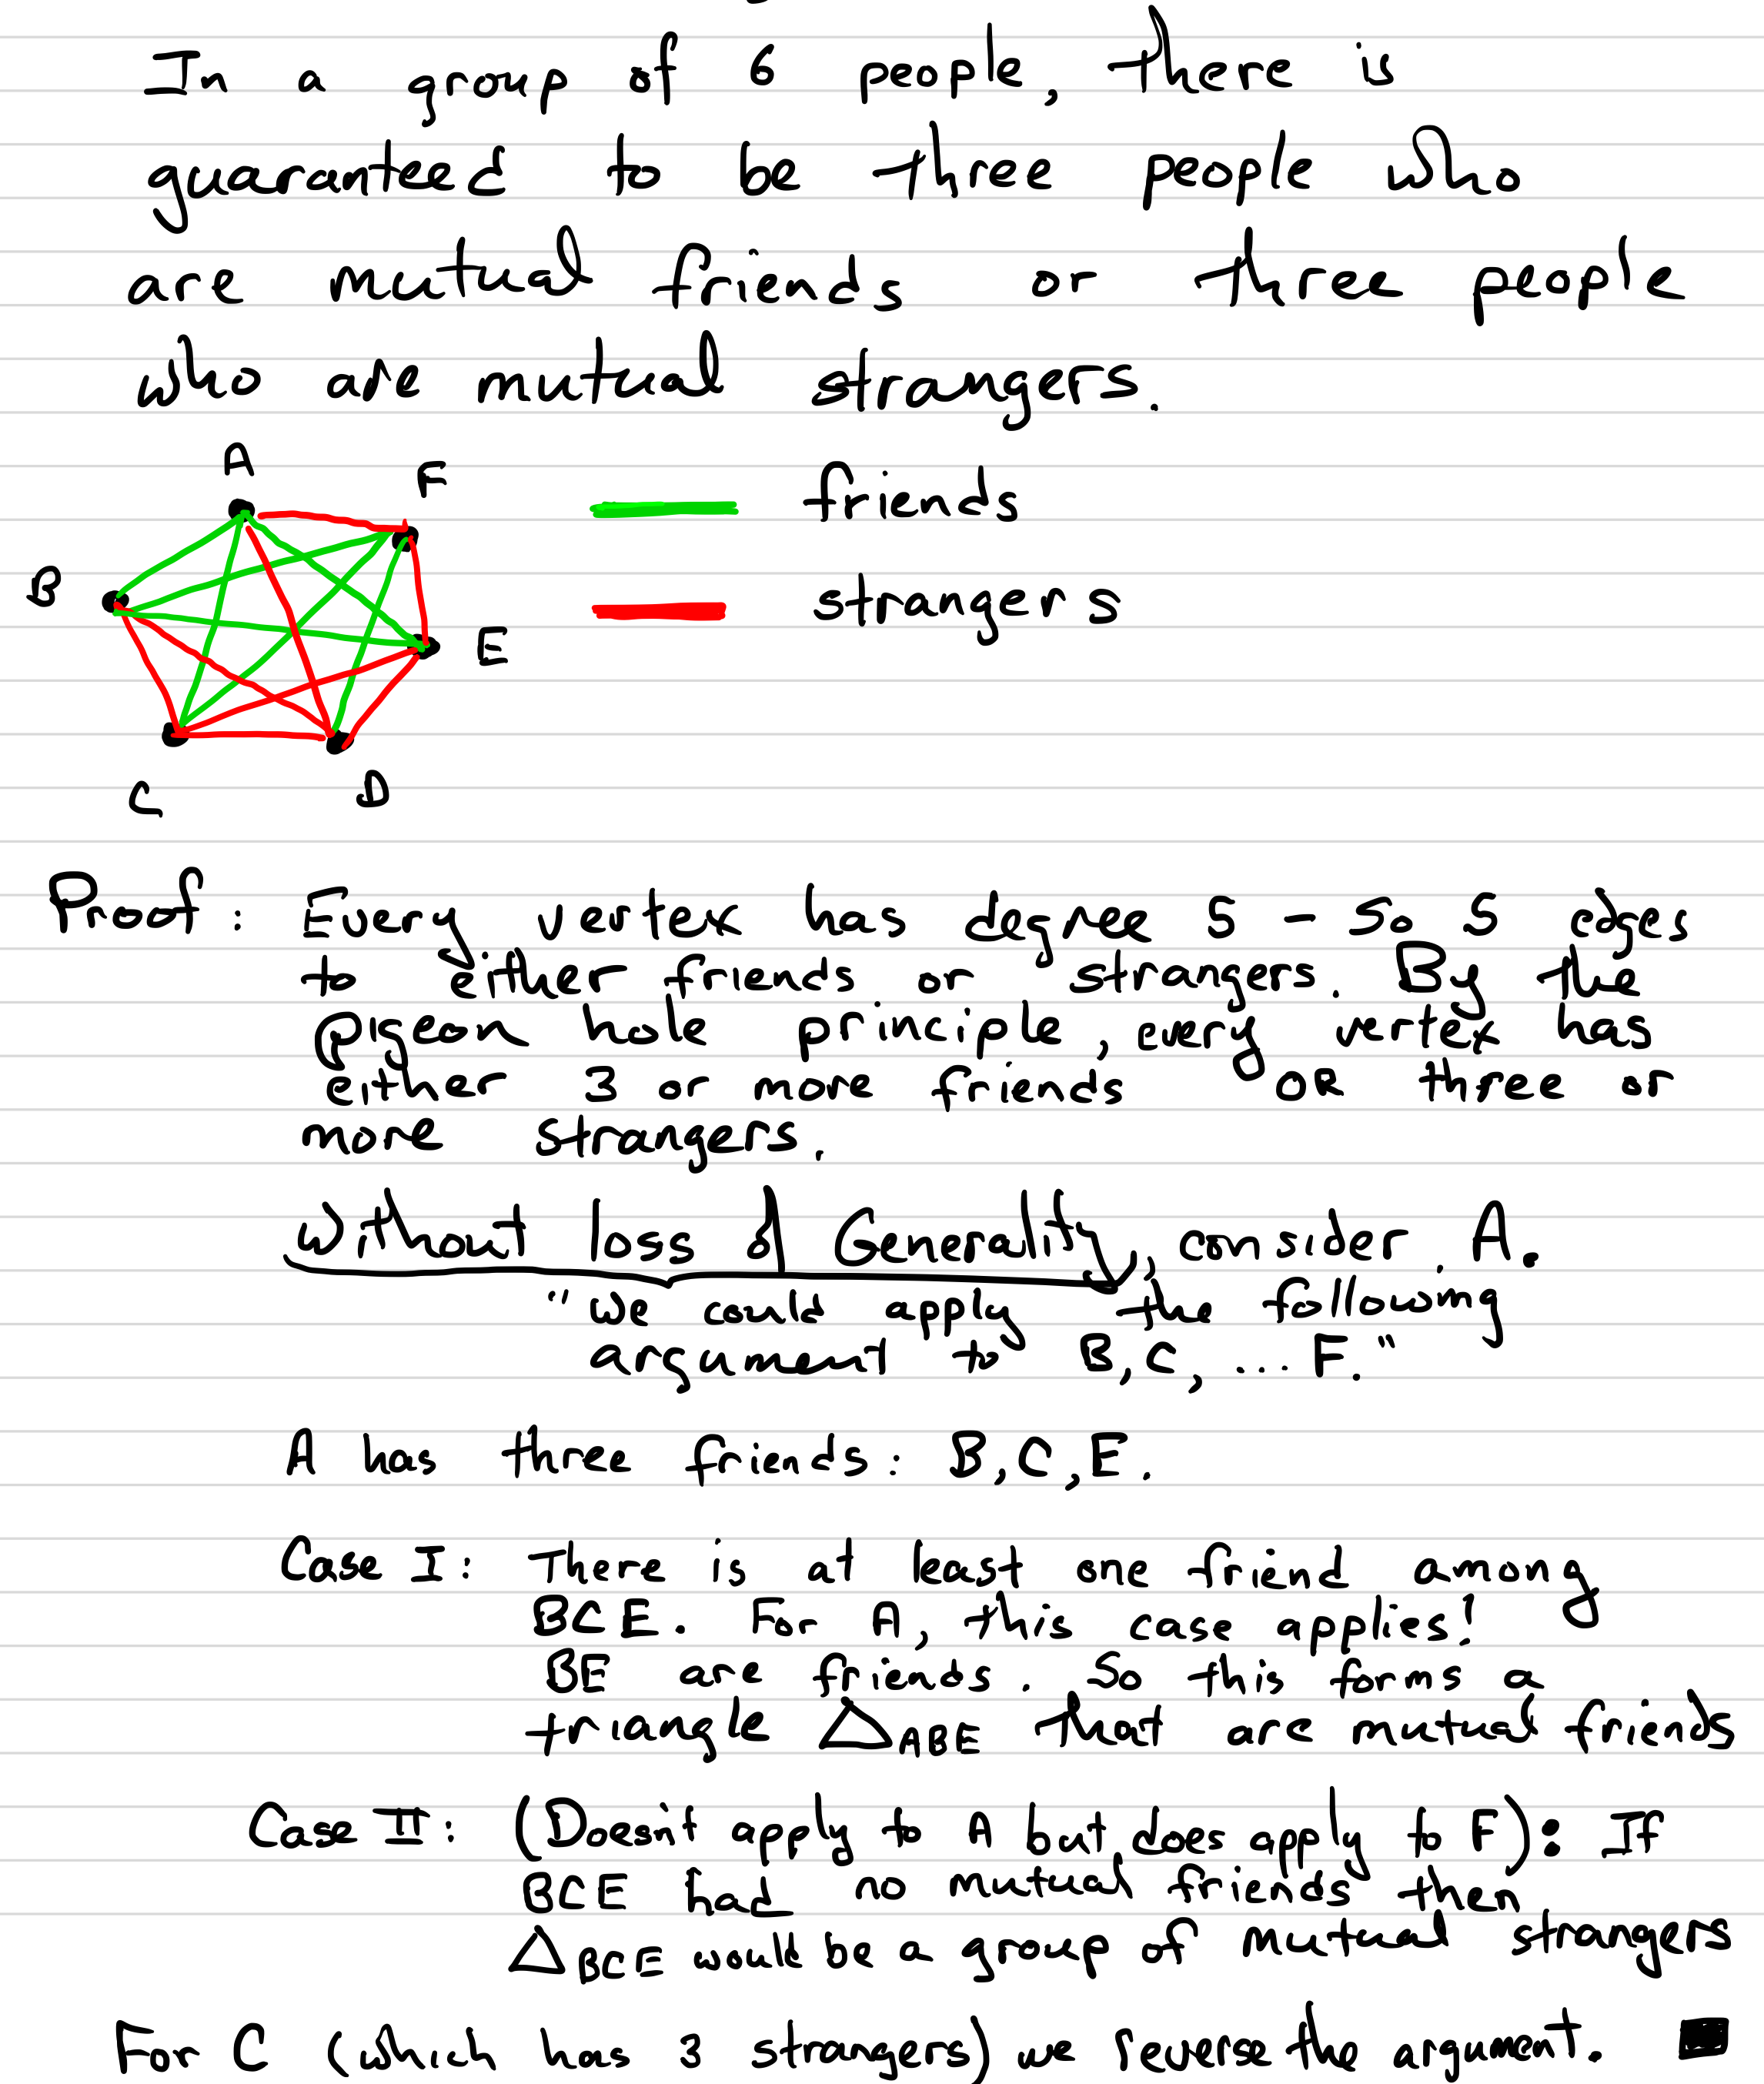 In a group of 6 people, there is
guaranteed to be three people who
are mutual friends or three people
who are mutual strangers.
A
F
friends
B
strangers
E
C
D
Proof: Every vertex has degree 5 - so 5 edges
to either friends or strangers. By the
pigeon hole principle, every vertex has
either 3 or more friends OR three or
more strangers.
Without loss of Generality, consider A.
"we could apply the following
argument to B, C, ... F."
A has three friends: B, C, E.
Case I: There is at least one friend among
BCE. For A, this case applies!
BE are friends. So this forms a
triangle △ABE that are mutual friends
Case II: (Doesn't apply to A but does apply to F): If
BCE had no mutual friends then
△BCE would be a group of mutual strangers
For C (which has 3 strangers) we reverse the argument.